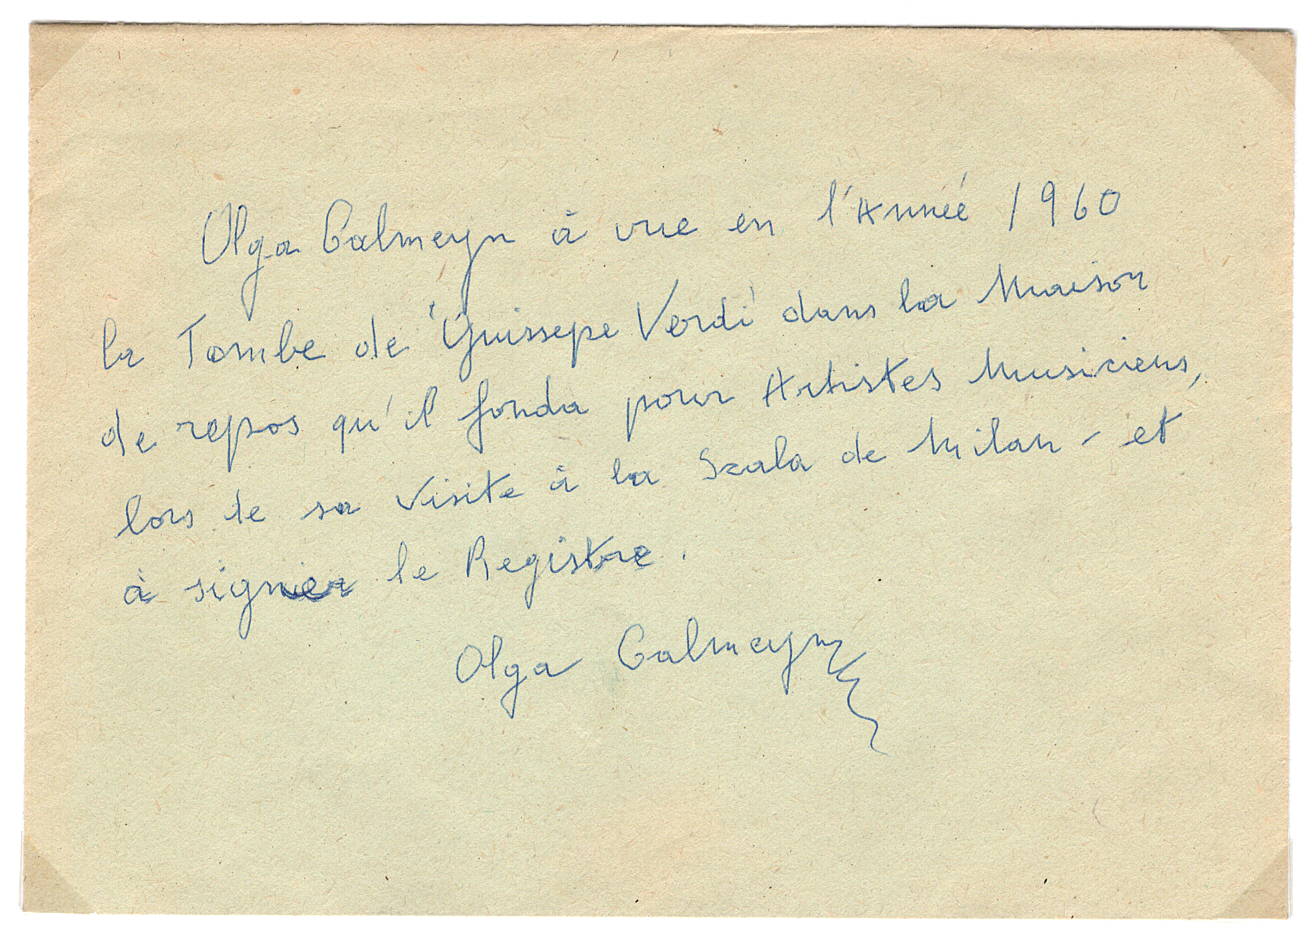 Olga Calmeyn à vue en l'Année 1960
la Tombe de "Guissepe Verdi" dans la Maison
de repos qu'il fonda pour Artistes Musiciens,
lors de sa visite à la Scala de Milan - et
à signer le Registre.
Olga Calmeyn